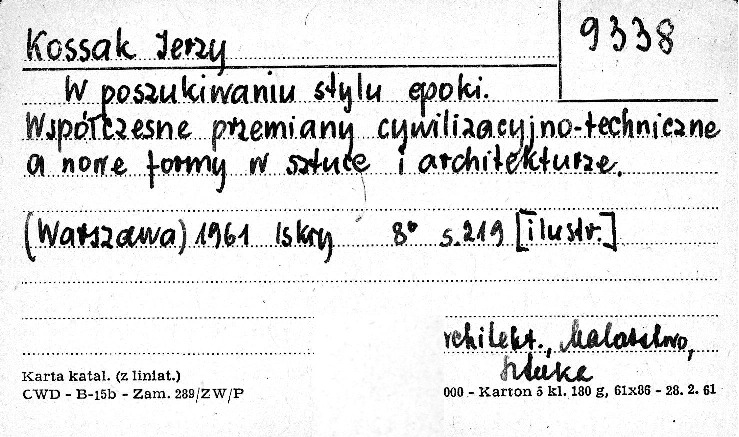 Kossak Jerzy
9338
W poszukiwaniu stylu epoki.
Współczesne przemiany cywilizacyjno-techniczne
a nowe formy w sztuce i architekturze.
(Warszawa) 1961 Iskry 8° s.219 [ilustr.]
rchitekt., Malarstwo,
Sztuka
Karta katal. (z liniat.)
CWD - B-15b - Zam. 289/ZW/P
000 - Karton 5 kl. 180 g, 61x86 - 28. 2. 61